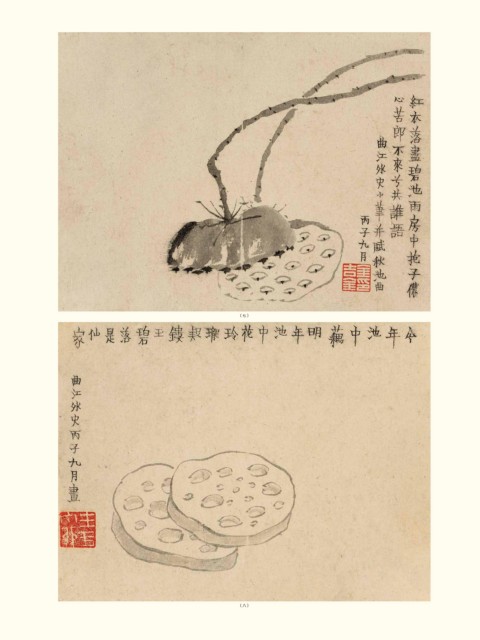 紅衣落盡碧池雨房中抱子儂
心苦郎不來兮共誰語
曲江外史小筆并賦秋池曲
丙子九月
今年池中藕明年池中花玲瓏鏤玉碧落是仙家
曲江外史丙子九月畫